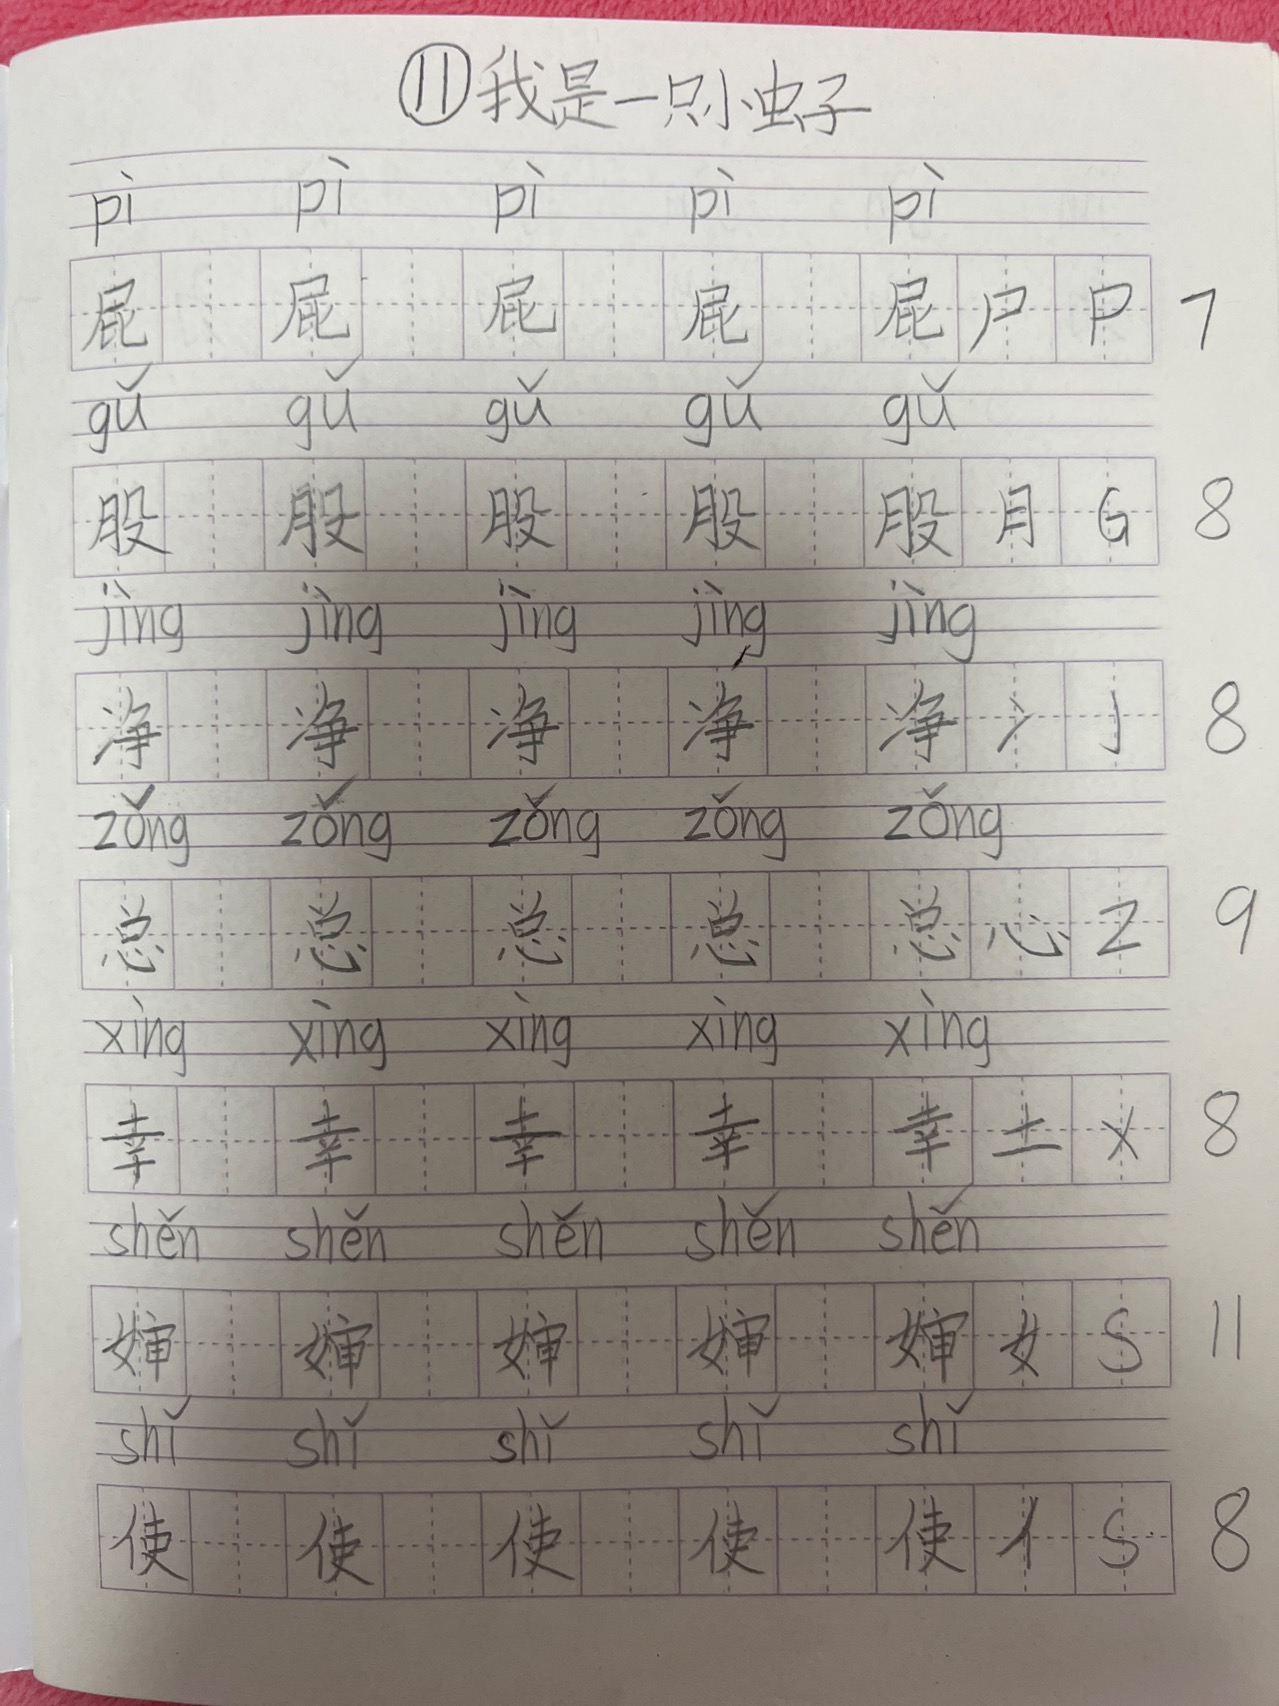 ⑪我是一只小虫子
pì pì pì pì pì
屁 屁 屁 屁 屁 尸 P 7
gǔ gǔ gǔ gǔ gǔ
股 股 股 股 股 月 G 8
jìng jìng jìng jìng jìng
净 净 净 净 净 冫 J 8
zǒng zǒng zǒng zǒng zǒng
总 总 总 总 总 心 Z 9
xìng xìng xìng xìng xìng
幸 幸 幸 幸 幸 土 X 8
shěn shěn shěn shěn shěn
婶 婶 婶 婶 婶 女 S 11
shǐ shǐ shǐ shǐ shǐ
使 使 使 使 使 亻 S 8